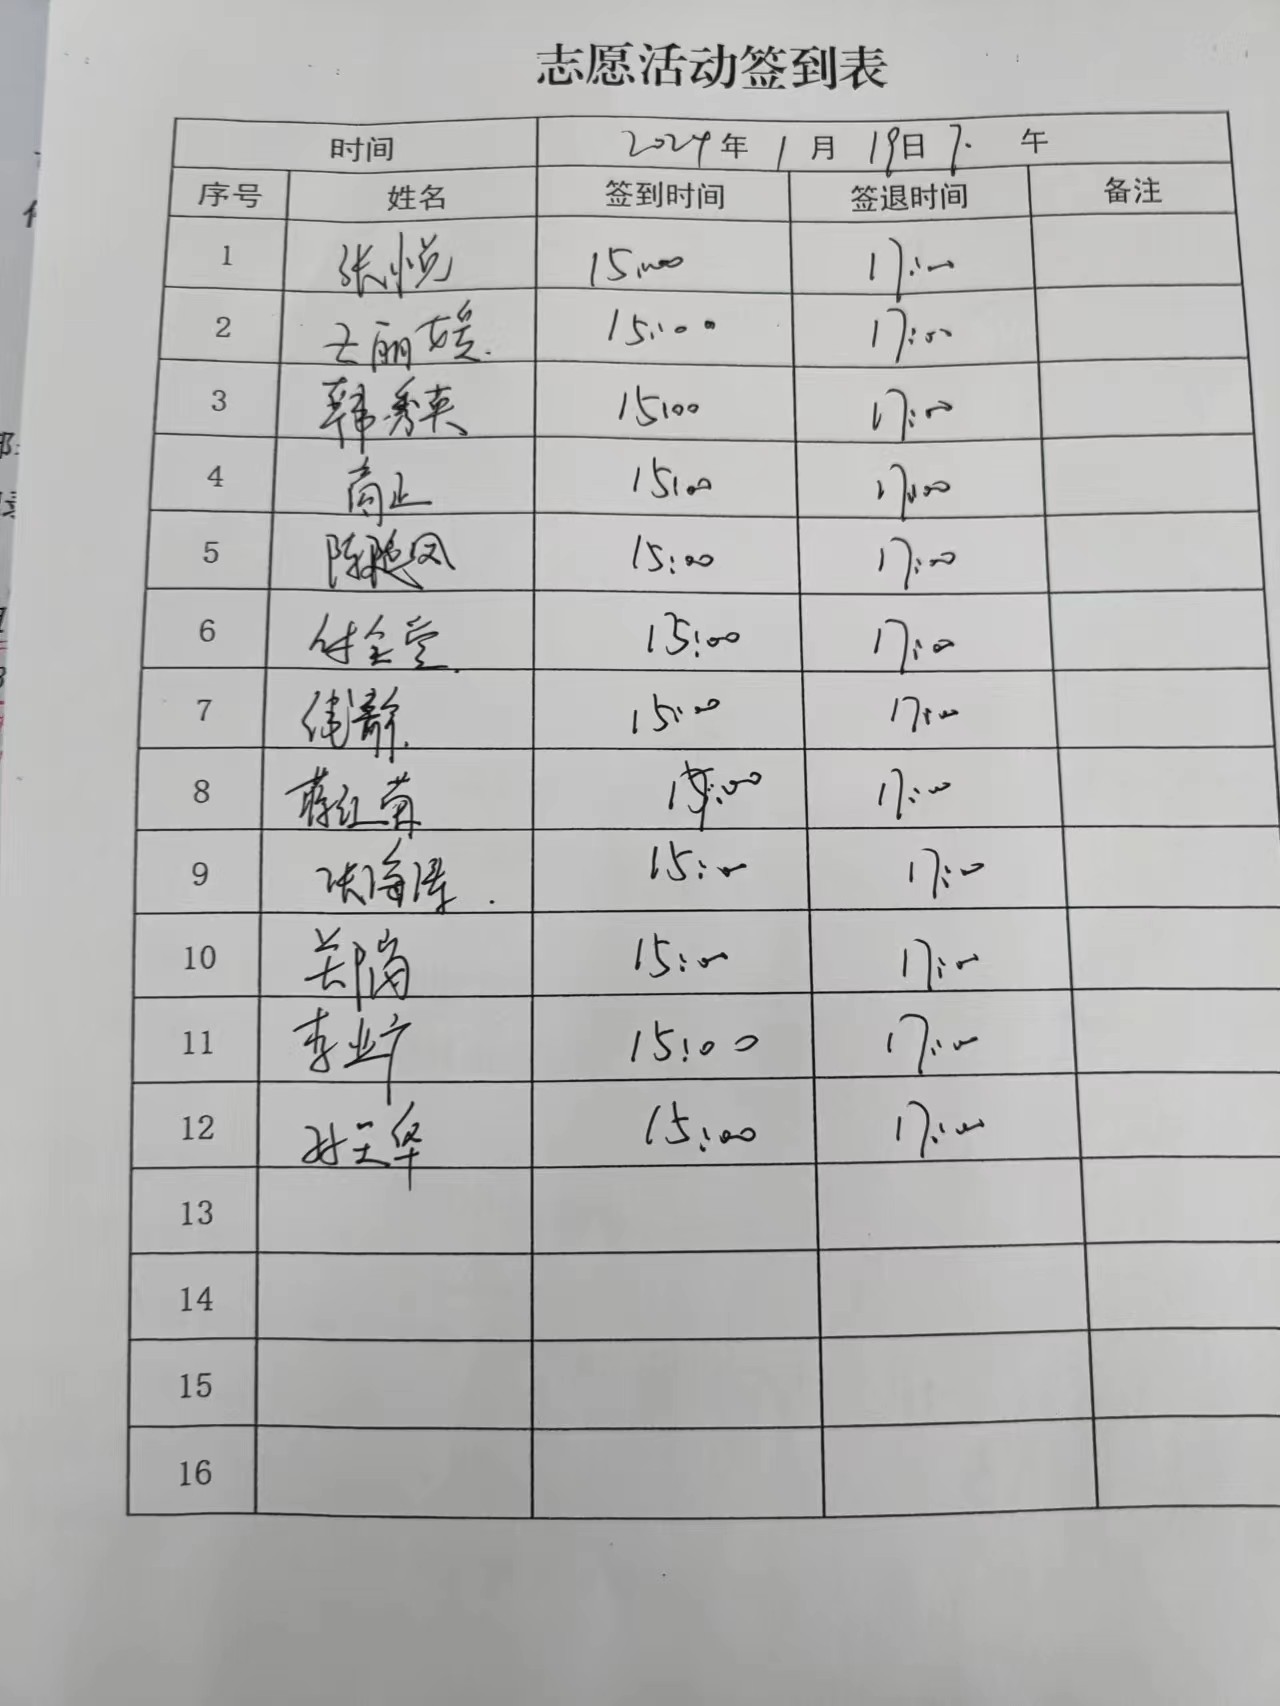 志愿活动签到表
时间 2024年 1月 19日 下 午
序号 姓名 签到时间 签退时间 备注
1 张悦 15:00 17:00
2 王丽媛 15:00 17:00
3 韩秀英 15:00 17:00
4 15:00 17:00
5 15:00 17:00
6 15:00 17:00
7 15:00 17:00
8 蒋红菊 15:00 17:00
9 15:00 17:00
10 15:00 17:00
11 李业广 15:00 17:00
12 15:00 17:00
13
14
15
16